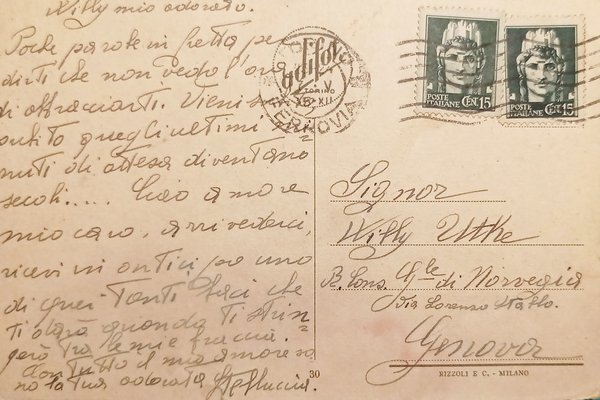 Willy mio adorato.
Poche parole in fretta pe=
dirti che non vedo l'ora
di abbracciarti. Vieni
subito quegli ultimi mi=
nuti di attesa diventano
secoli..... Ciao amore
mio caro, arrivederci,
ricevi in anticipo uno
di quei tanti baci che
ti darà quando ti strin=
gerò tra le mie braccia.
Con tutto il mio amore so
no la tua adorata
30
TORINO
FERROVIA
POSTE
ITALIANE CENT 15
POSTE
ITALIANE CENT 15
Signor
Willy Utke
R. Cons. Gle di Norvegia
Via Lorenzo
Genova
RIZZOLI E C. - MILANO